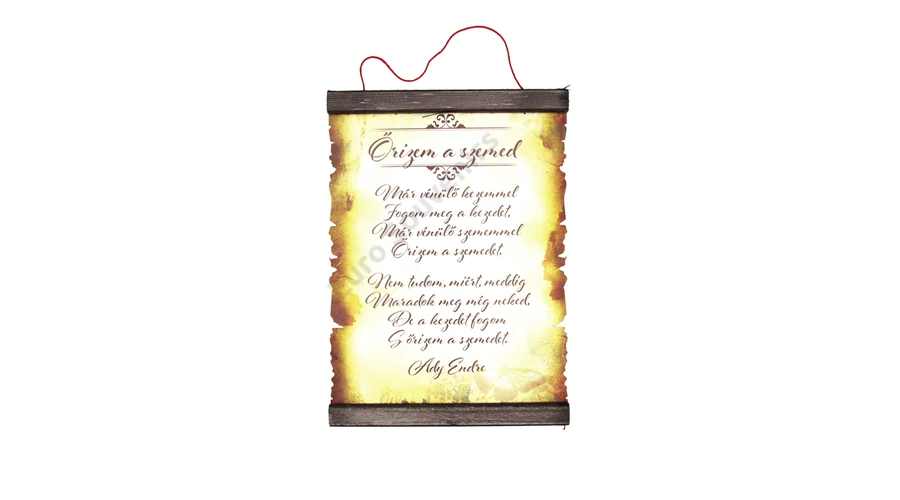 Őrizem a szemed
Már vénülő kezemmel
Fogom meg a kezedet,
Már vénülő szememmel
Őrizem a szemedet.
Nem tudom, miért, meddig
Maradok meg még neked,
De a kezedet fogom
S őrizem a szemedet.
Ady Endre
Euro Souvenirs